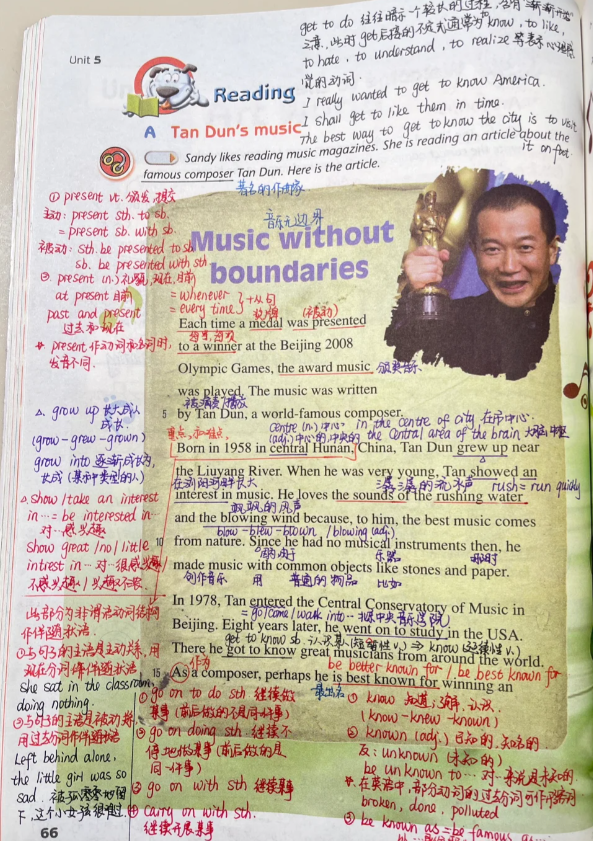 get to do 往往暗示一个较长的过程,含有"渐渐开始"
之意,此时get后搭的不定式通常为 to know, to like,
to hate, to understand, to realize 等表示心理感
觉的动词.
I really wanted to get to know America.
I shall get to like them in time.
The best way to get to know the city is to visit
it on foot.
Unit 5
Reading
A Tan Dun's music
Sandy likes reading music magazines. She is reading an article about the
famous composer Tan Dun. Here is the article.
著名的作曲家
① present vt. 颁发,提交
主动: present sth. to sb.
= present sb. with sth.
被动: sth. be presented to sb
sb. be presented with sth
② present (n.) 礼物,现在,目前
at present 目前
past and present
过去和现在
* present 作动词和名词时,
发音不同.
音乐无边界
Music without
boundaries
= whenever
= every time } +从句
奖牌 (被动)
Each time a medal was presented
to a winner at the Beijing 2008
Olympic Games, the award music 颁奖音乐
was played. The music was written
5 by Tan Dun, a world-famous composer.
△ grow up 长大成人
成长
(grow-grew-grown)
grow into 逐渐成长为,
长成(某种类型的人)
centre (n.) 中心 in the centre of city 在市中心.
(adj.) 中心的,中央的 the central area of the brain 大脑中枢
Born in 1958 in central Hunan, China, Tan Dun grew up near
the Liuyang River. When he was very young, Tan showed an
在浏阳河畔长大 rush = run quickly
interest in music. He loves the sounds of the rushing water
and the blowing wind because, to him, the best music comes
blow-blew-blown / blowing (adj.)
10 from nature. Since he had no musical instruments then, he
乐器 那时
made music with common objects like stones and paper.
创作音乐 用 普通的物品 比如
show/take an interest
in … = be interested in
对…感兴趣
Show great/no/little
intrest in … 对…很感兴趣/
不感兴趣/兴趣不浓.
In 1978, Tan entered the Central Conservatory of Music in
= go/come/walk into …
Beijing. Eight years later, he went on to study in the USA.
get to know sb. 认识某人(短暂性v.) ⇒ know (延续性v.)
There he got to know great musicians from around the world.
作为 be better known for / be best known for
15 As a composer, perhaps he is best known for winning an
此部分为非谓语动词结构
作伴随状语.
①与句子的主语是主动关系,用
现在分词作伴随状语.
She sat in the classroom,
doing nothing.
②与句子的主语是被动关系,
用过去分词作伴随状语
Left behind alone,
the little girl was so
sad.
① go on to do sth 继续做
某事(前后做的不是同一件事)
② go on doing sth. 继续不
停地做某事(前后做的是
同一件事)
③ go on with sth 继续某事
④ carry on with sth.
继续开展某事
① know 知道;了解,认识.
(know-knew-known)
② known (adj.) 已知的,知名的
反: unknown (未知的)
be unknown to … 对…来说是未知的.
* 在英语中,部分动词的过去分词可作形容词
broken, done, polluted
③ be known as = be famous as …
66